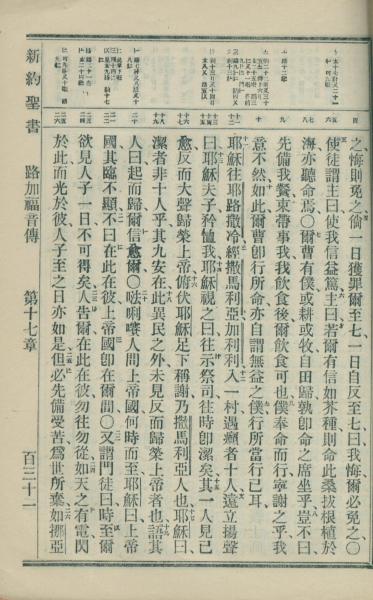 之悔則免之倘一日獲罪爾至七一日自反至七曰我悔爾必免之〇
使徒謂主曰使我信益篤主曰若爾有信如芥種則命此桑拔根植於
海亦聽命焉〇爾曹有僕或耕或牧自田歸孰卽命之席坐乎豈不曰
先備我餐束帶事我我飲食後爾飲食可也僕奉命而行寧謝之乎我
意不然如此爾曹卽行所命亦自謂無益之僕行所當行已耳
耶穌往耶路撒冷經撒馬利亞加利利入一村遇癩者十人遠立揚聲
曰耶穌夫子矜恤我耶穌視之曰往示祭司往時卽潔矣其一人見已
愈反而大聲歸榮上帝俯伏耶穌足下稱謝乃撒馬利亞人也耶穌曰
潔者非十人乎其九安在此異民之外未見反而歸榮上帝者也語其
人曰起而歸爾信愈爾〇𠵽唎㘔人問上帝國何時而至耶穌曰上帝
國其臨不顯不曰在此在彼上帝國卽在爾間〇又謂門徒曰時至爾
欲見人子一日不可得矣人告爾在此在彼勿往勿從如天之有電閃
於此而光於彼人子至之日亦如是但必先備受苦爲世所棄如挪亞
新約聖書 路加福音傳 第十七章 百三十一